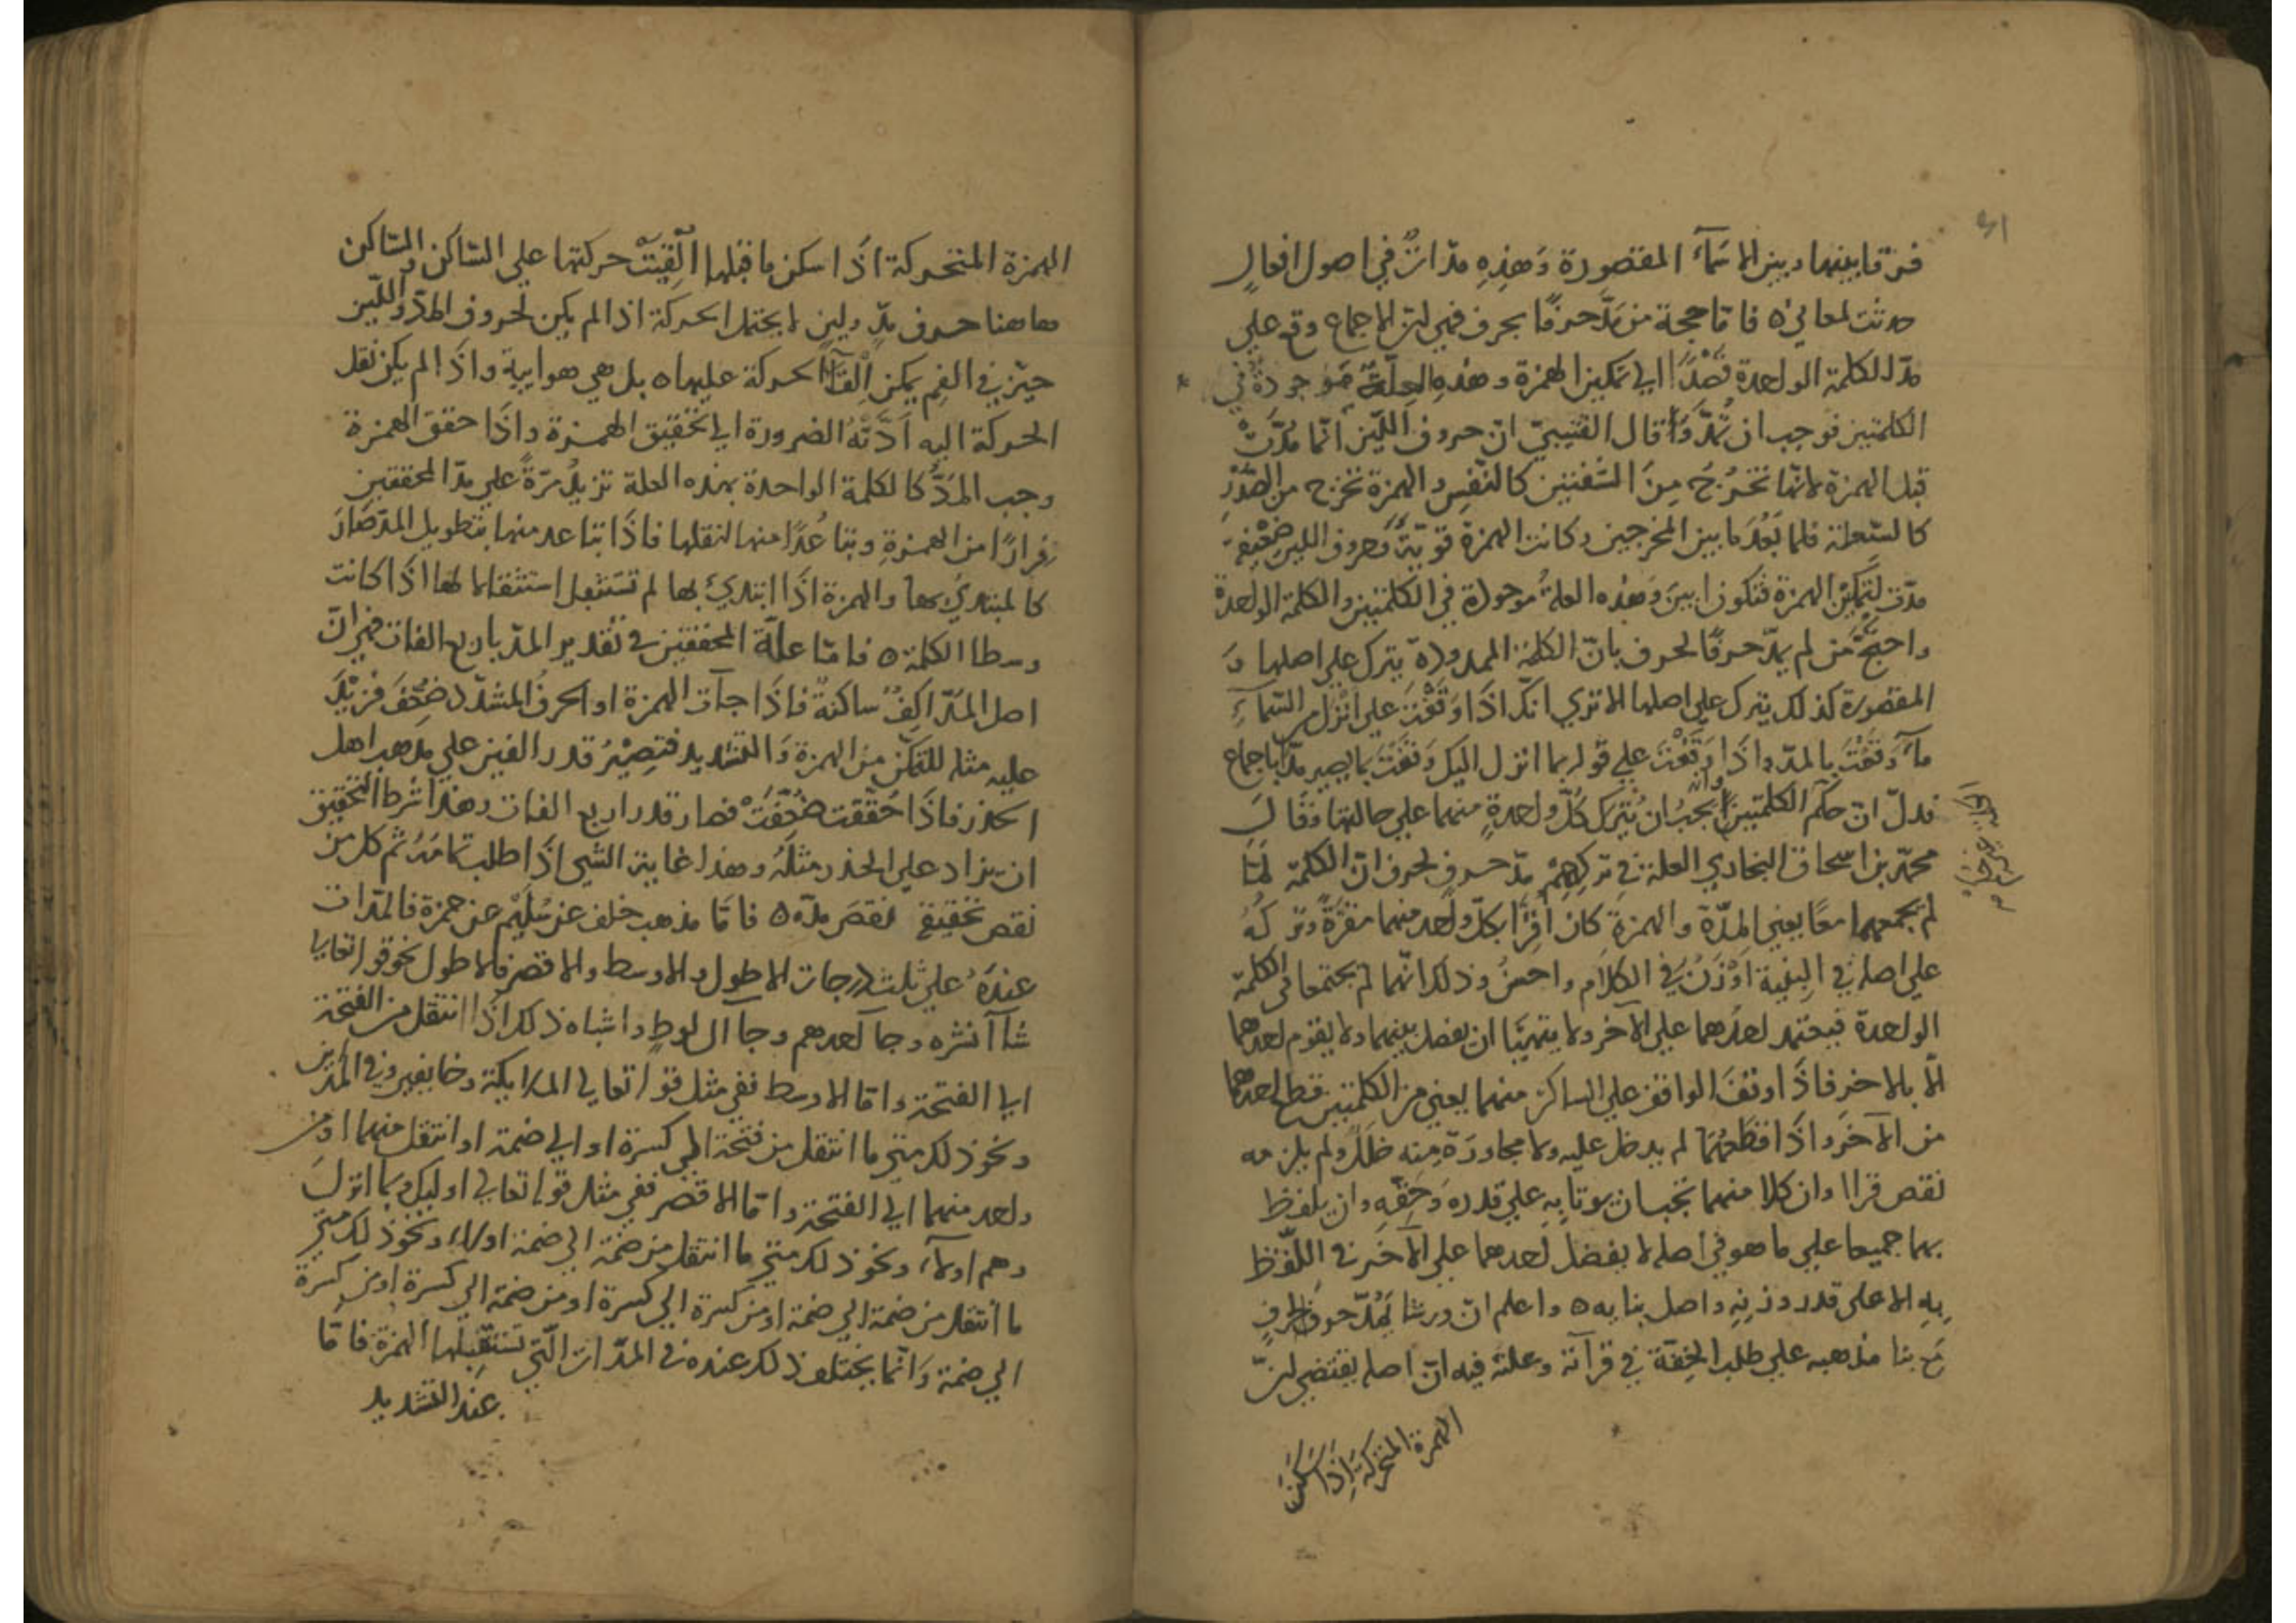 ٤١
فرقا بينها وبين الاسمآء المقصورة وَهذِهِ مدّاتٌ في اصول افعالٍ
حدثت لمعاني ه فامّا حجة من مَدَّ حرفًا بحرف فهي لان الاجماع وقع علي
مدّ الكلمة الواحدة قَصْدًا الي تمكين الهمزة وهذه العِلّةُ موجودةٌ في
الكلمتين فوجب ان تُمدَّ وَقال القتيبيّ انّ حروف اللّين انّما مُدّتْ
قبل الهمزة لانّها تخرُجَ مِنَ الشفتين كالنّفس والهمزة تخرج من الصَّدْرِ
كالسّعلة فلما بَعُدَ ما بين المخرجين وكانت الهمزة قويّةً وَحروف اللين ضعيفة
مدّت لتَمكّن الهمزة فتكون ابين وَهذه العلةُ موجودة في الكلمتين والكلمة الواحدة
واحتجّ من لم يمدّ حرفًا لحرف بانّ الكلمة الممدودة يترك علي اصلها وَ
المقصورة كذلك يترك علي اصلها الا تري انّك اذَا وَقَفْتَ علي انْزل من السّمآءِ
مآءً وَقَفْتَ بالمدّ واذَا وَقَفْتَ علي قوله بما انزل اليك وَقَفْتَ بما بغير مدّ باجماع
فدلّ انّ حكم الكلمتين وانه يجبُ ان يُتركَ كلّ واحدةٍ منهما علي حالتها وَقالَ
محمّد بن اسحاق البخاري العلة في تركِهِمْ مدّ حرفٍ لحرف انّ الكلمة لمّا
لم تجمعهما معًا يعني المدّة والهمزة كان اقِرّا بكلّ واحدٍ منهما منفردًة وتركهُ
علي اصله في البِنْية اوْزَنُ في الكلام واحسنُ وذلك انّهما لم يجتمعا في الكلمة
الواحدة فيعتمد احدُهما علي الآخر ولا يتهيّا ان يفصل بينهما ولا يقوم احدهما
الّا بالاخر فاذَا وقفَ الواقف علي الساكن منهما يعني من الكلمتين قطع احدهما
من الآخر واذَا قطعهُمَا لم يدخل عليه ولا مجاورَة مِنه خلَلٌ ولم يلزمه
نقص قراا وان كلا منهما يجب ان يوتا بِهِ علي قدره وَحقّهِ وان يلفظ
بهما جميعا علي ما هو في اصله لا يفضل احدهما علي الآخر في اللّفظ
بِهِ الا علي قدر وزنِهِ واصل بنايه ه واعلم انّ ورشا يَمُدّ حرفًا لحرفٍ
مع بنا مذهبه علي طلب الخِفّة في قرآته وعلته فيه انّ اصله يقتضي انّ
الهمزة المتحركة اذا سكن
الهمزة المتحركة اذَا سكن ما قبلها اُلْقِيَتْ حركتها علي السّاكن والسّاكن
هاهنا حرف مدٍّ ولينٍ لا يحتمل الحركة اذ لم يكن لحروف المدّ وَاللّين
حيّز في الفم يمكن اِلْقآءُ الحركة عليها ه بل هي هوايية واذَا لم يكن نقل
الحركة اليه اَدَّتْهُ الضرورة الي تحقيق الهمزة واذَا حقق الهمزة
وجب المدَّ كالكلمة الواحدة بهذه العلة تزيدُ مرّةً علي مدّ المحققين
فِرارًا من الهمزةِ وتباعُدًا منها لثقلها فاذَا تباعد منها بتطويل المدّ صَارَ
كالمبتديُ بها والهمزة اذَا ابتديُ بها لم تستثقل استثقالها لها اذَا كانت
وسطا الكلمة ه فامّا علّة المحققين في تقدير المدّ باربع الفات فهي انّ
اصل المدّ اَلِفٌ ساكنةٌ فاذَا جآت الهمزة او الحرف المشدّد ضُعّفَ فزيْدَ
عليه مثله للتمكّن من الهمزة وَالتشديد فتصِيْرُ قدر الفين علي مذهب اهل
الحدر فاذَا حُقّقت ضُعِّفَتْ فصار قدر اربع الفات وهذا شرط التحقيق
ان يزاد علي الحدر مثلَهُ وهذا غاية الشي اذَا طلب تمامَهُ ثم كل من
نقص تحقيقهُ نقصَ مدّه ه فامّا مذهب خلف عن سُلَيْم عن حمزة فالمدّات
عنده علي ثلث درجات الاطول والاوسط والاقصر فالاطول نحو قوله تعالي
شآ أنشره وجآ احدهم وجآ ال لوطٍ واشباه ذلك اذَا انتقل من الفتحة
الي الفتحة وامّا الاوسط ففي مثل قوله تعالي الملايكة وخايفين وفي المدّين
ونحو ذلك متي ما انتقل من فتحة الي كسرة او الي ضمة او انتقل منهما او من
واحد منهما الي الفتحة وامّا الاقصر ففي مثل قوله تعالي اوليك وبما انزلَ
وهم اولآء ونحو ذلك متي ما انتقل من ضمة الي ضمة اولاء ونحو ذلك متي
ما انتقل من ضمة الي ضمة او من كسرة الي كسرة او من ضمة الي كسرة او من كسرة
الي ضمة وَانّما يختلف ذلك عنده في المدّات الّتي تستقبلها الهمزة فامّا
عند التشديد